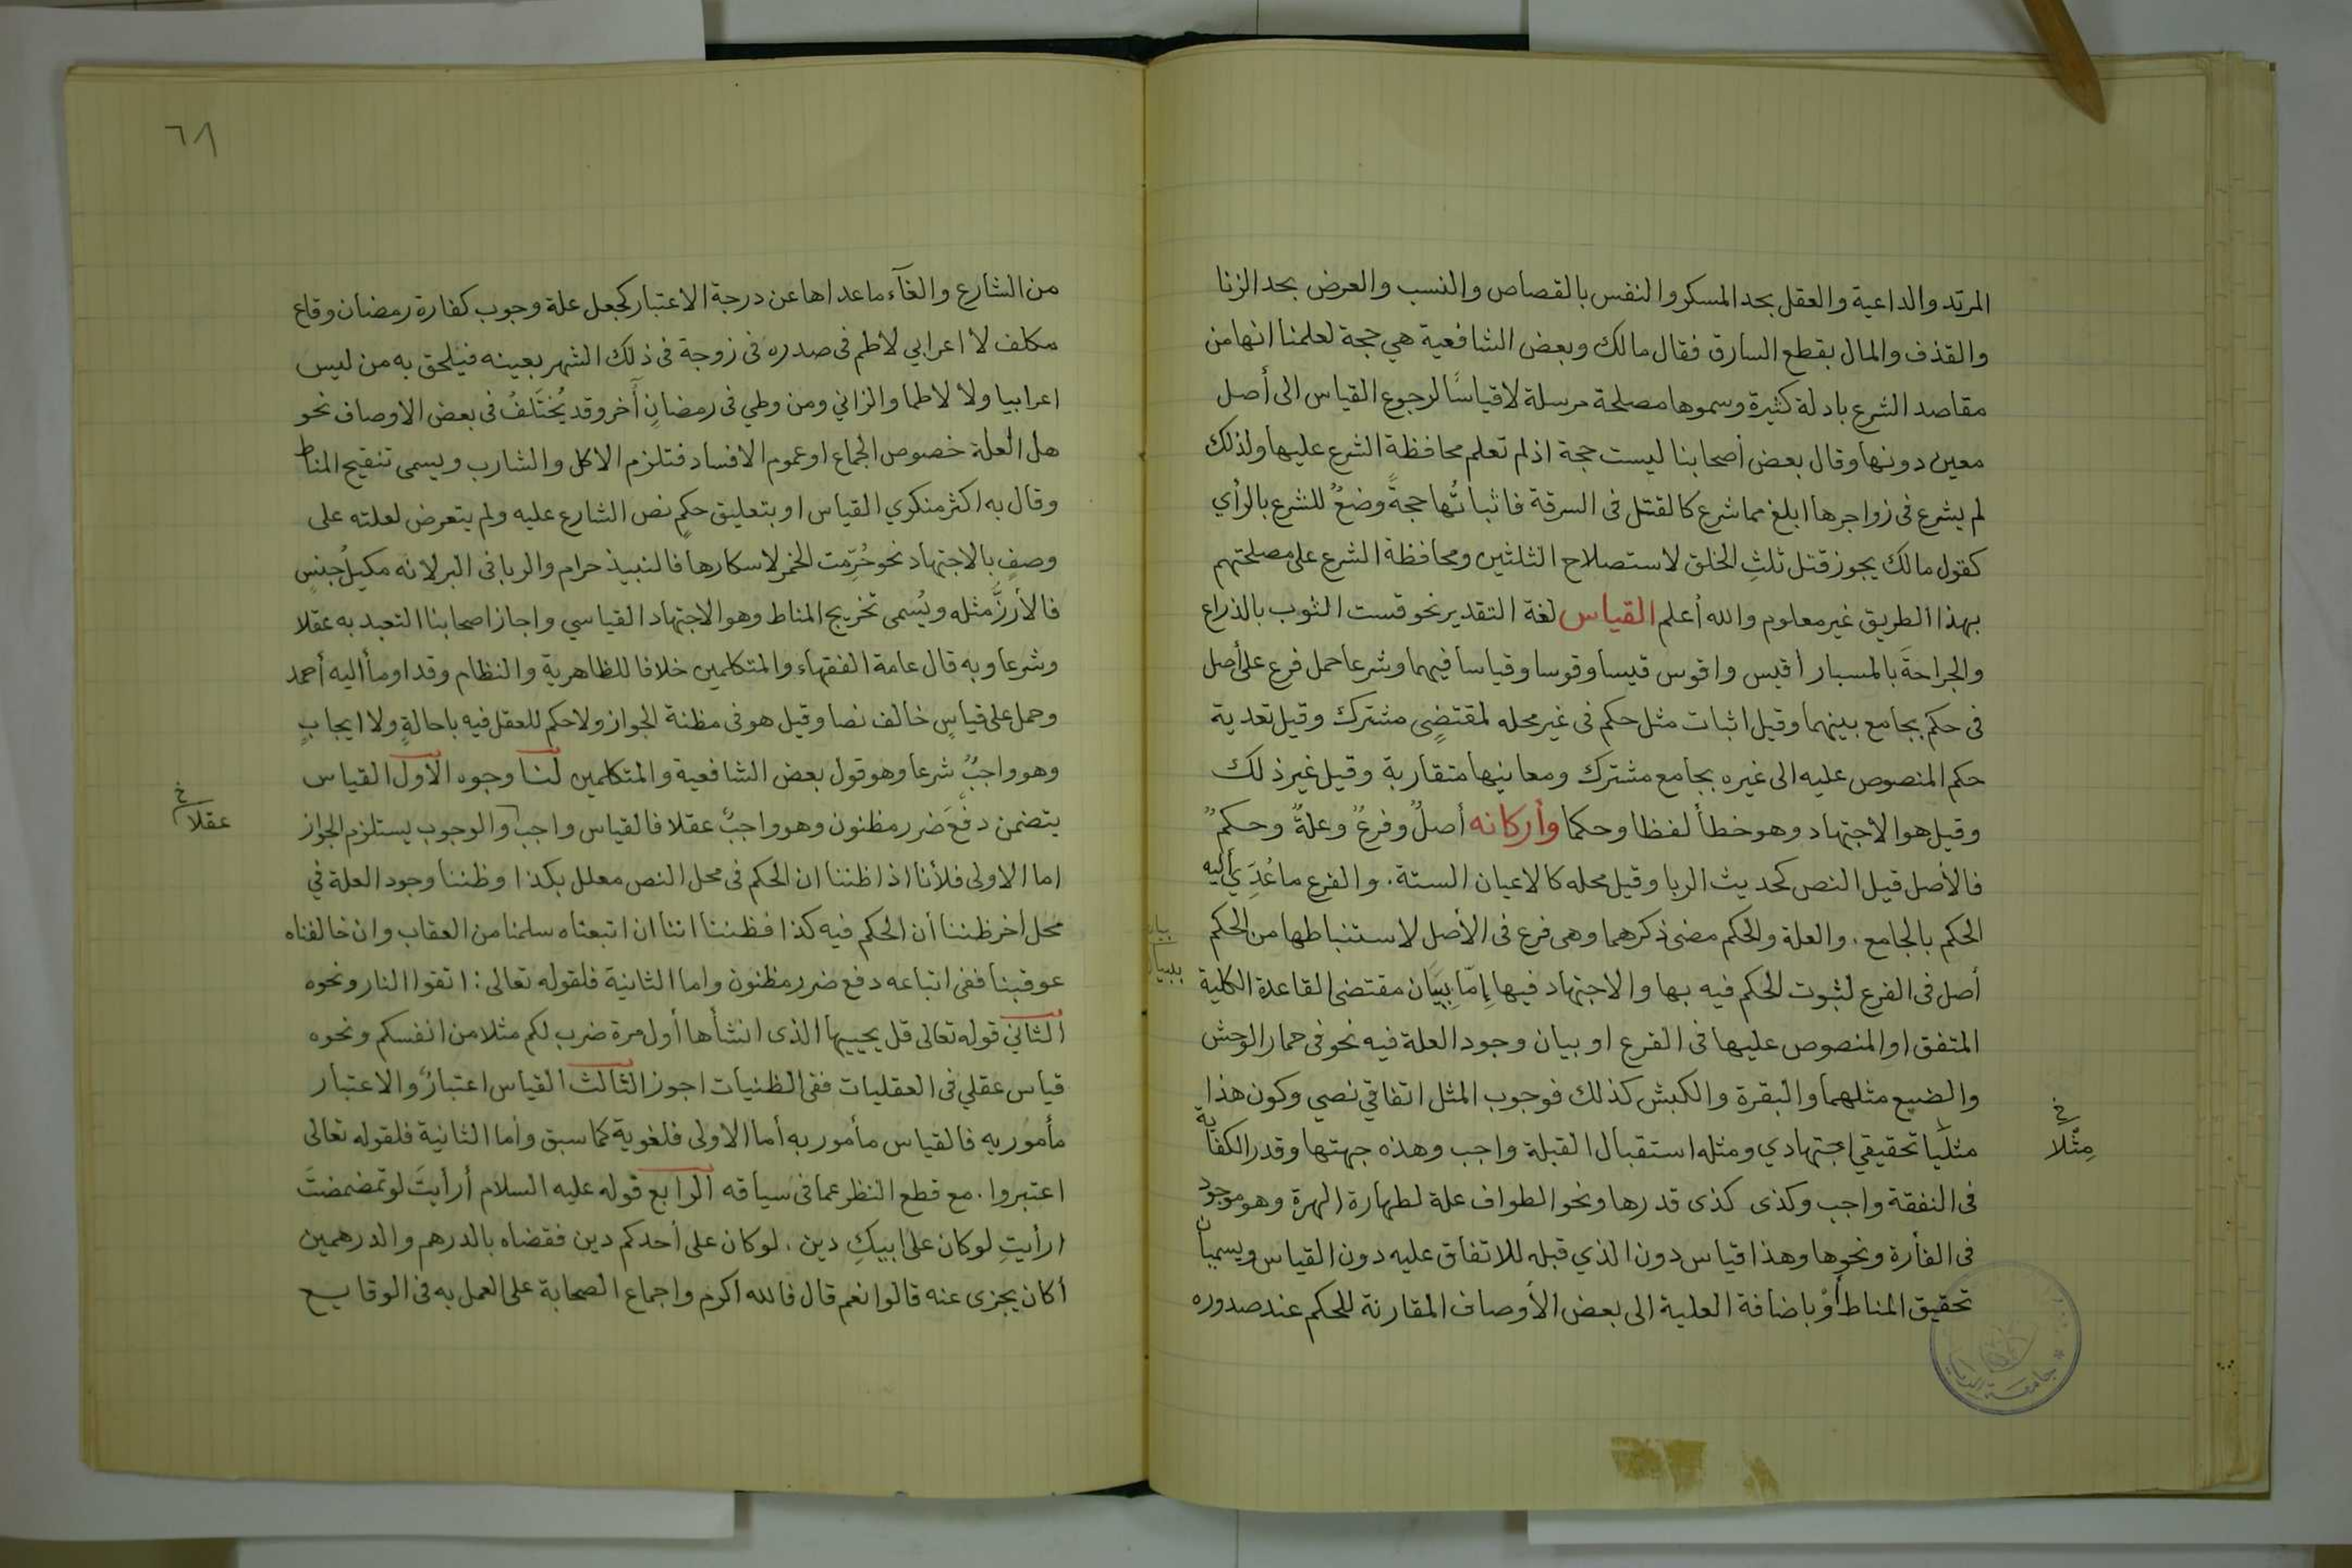 المرتد والداعية والعقل بحد المسكر والنفس بالقصاص والنسب والعرض بحد الزنا
والقذف والمال بقطع السارق فقال مالك وبعض الشافعية هي حجة لعلمنا انها من
مقاصد الشرع بادلة كثيرة وسموها مصلحة مرسلة لا قياسًا لرجوع القياس الى أصل
معين دونها وقال بعض أصحابنا ليست حجة اذ لم تعلم محافظة الشرع عليها ولذلك
لم يشرع فى زواجرها ابلغ مما شرع كالقتل فى السرقة فاثباتُها حجةً وضعٌ للشرع بالرأي
كقول مالك يجوز قتل ثلثِ الخلق لاستصلاح الثلثين ومحافظة الشرع على مصلحتهم
بهذا الطريق غير معلوم والله أعلم القياس لغة التقدير نحو قست الثوب بالذراع
والجراحةَ بالمسبار أقيس واقوس قيسا وقوسا وقياسا فيهما وشرعا حمل فرع على أصل
فى حكم بجامع بينهما وقيل اثبات مثل حكم فى غير محله لمقتضٍى مشترك وقيل تعدية
حكم المنصوص عليه الى غيره بجامع مشترك ومعانيها متقاربة وقيل غير ذلك
وقيل هو الاجتهاد وهو خطأ لفظا وحكما وأركانه أصلٌ وفرعٌ وعلةٌ وحكمٌ
فالأصل قيل النص كحديث الربا وقيل محله كالاعيان الستة. والفرع ما عُدِّيَ أليه
الحكم بالجامع. والعلة والحكم مضى ذكرهما وهى فرع فى الأصل لاستنباطها من الحكم
أصل فى الفرع لثبوت الحكم فيه بها والاجتهاد فيها إِمّا بِبَيَان مقتضى القاعدة الكلية
المتفق او المنصوص عليها فى الفرع او بيان وجود العلة فيه نحو فى حمار الوحش
والضبع مثلهما والبقرة والكبش كذلك فوجوب المثل اتفاقي نصي وكون هذا
مثليا تحقيقي اجتهادي ومثله استقبال القبلة واجب وهذه جهتها وقدر الكفاية
مِثْلا خ
فى النفقة واجب وكذى كذى قدرها ونحو الطواف علة لطهارة الهرة وهو موجود
فى الفأرة ونحوها وهذا قياس دون الذي قبله للاتفاق عليه دون القياس ويسميان
تحقيق المناط أوْ باضافة العلية الى بعض الأوصاف المقارنة للحكم عند صدوره
٦٨
من الشارع والغآء ماعداها عن درجة الاعتبار كجعل علة وجوب كفارة رمضان وقاع
مكلف لا اعرابي لاطم فى صدره فى زوجة فى ذلك الشهر بعينه فيلحق به من ليس
اعرابيا ولا لاطما والزاني ومن وطي فى رمضانٍ آخر وقد يُختَلفُ فى بعض الاوصاف نحو
هل العلة خصوص الجماع او عموم الافساد فتلزم الاكل والشارب ويسمى تنقيح المناط
وقال به اكثر منكري القياس او بتعليق حكمٍ نص الشارع عليه ولم يتعرض لعلته على
وصفٍ بالاجتهاد نحو حُرِّمت الخمر لاسكارها فالنبيذ حرام والربا فى البر لانه مكيلُ جنسٍ
فالأرزُّ مثله ويُسمى تخريج المناط وهو الاجتهاد القياسي واجاز اصحابنا التعبد به عقلا
وشرعا وبه قال عامة الفقهاء والمتكلمين خلافا للظاهرية والنظام وقد اومأ أليه أحمد
وحمل على قياسٍ خالف نصا وقيل هو فى مظنة الجواز ولا حكم للعقل فيه باحالةٍ ولا ايجابٍ
وهو واجبٌ شرعا وهو قول بعض الشافعية والمتكلمين لنا وجوه الأول القياس
يتضمن دفعَ ضرر مظنون وهو واجبٌ عقلا فالقياس واجب والوجوب يستلزم الجواز
عقلا خ
اما الاولى فلأنا اذا ظننا ان الحكم فى محل النص معلل بكذا وظننا وجود العلة في
محل أخر ظننا أن الحكم فيه كذا فظننا اننا ان اتبعناه سلمنا من العقاب وان خالفناه
عوقبنا ففى اتباعه دفع ضرر مظنون واما الثانية فلقوله تعالى: اتقوا النار ونحوه
الثاني قوله تعالى قل يحييها الذى انشأها أول مرة ضرب لكم مثلا من انفسكم ونحوه
قياس عقلي فى العقليات ففى الظنيات اجوز الثالث القياس اعتبارٌ والاعتبار
مأمور به فالقياس مأمور به أما الاولى فلغوية كما سبق وأما الثانية فلقوله تعالى
اعتبروا. مع قطع النظر عما فى سياقه الرابع قوله عليه السلام أرأيتَ لو تمضمضتَ
ارأيتِ لو كان على ابيكِ دين. لو كان على أحدكم دين فقضاه بالدرهم والدرهمين
أكان يجزى عنه قالوا نعم قال فالله اكرم واجماع الصحابة على العمل به فى الوقايع